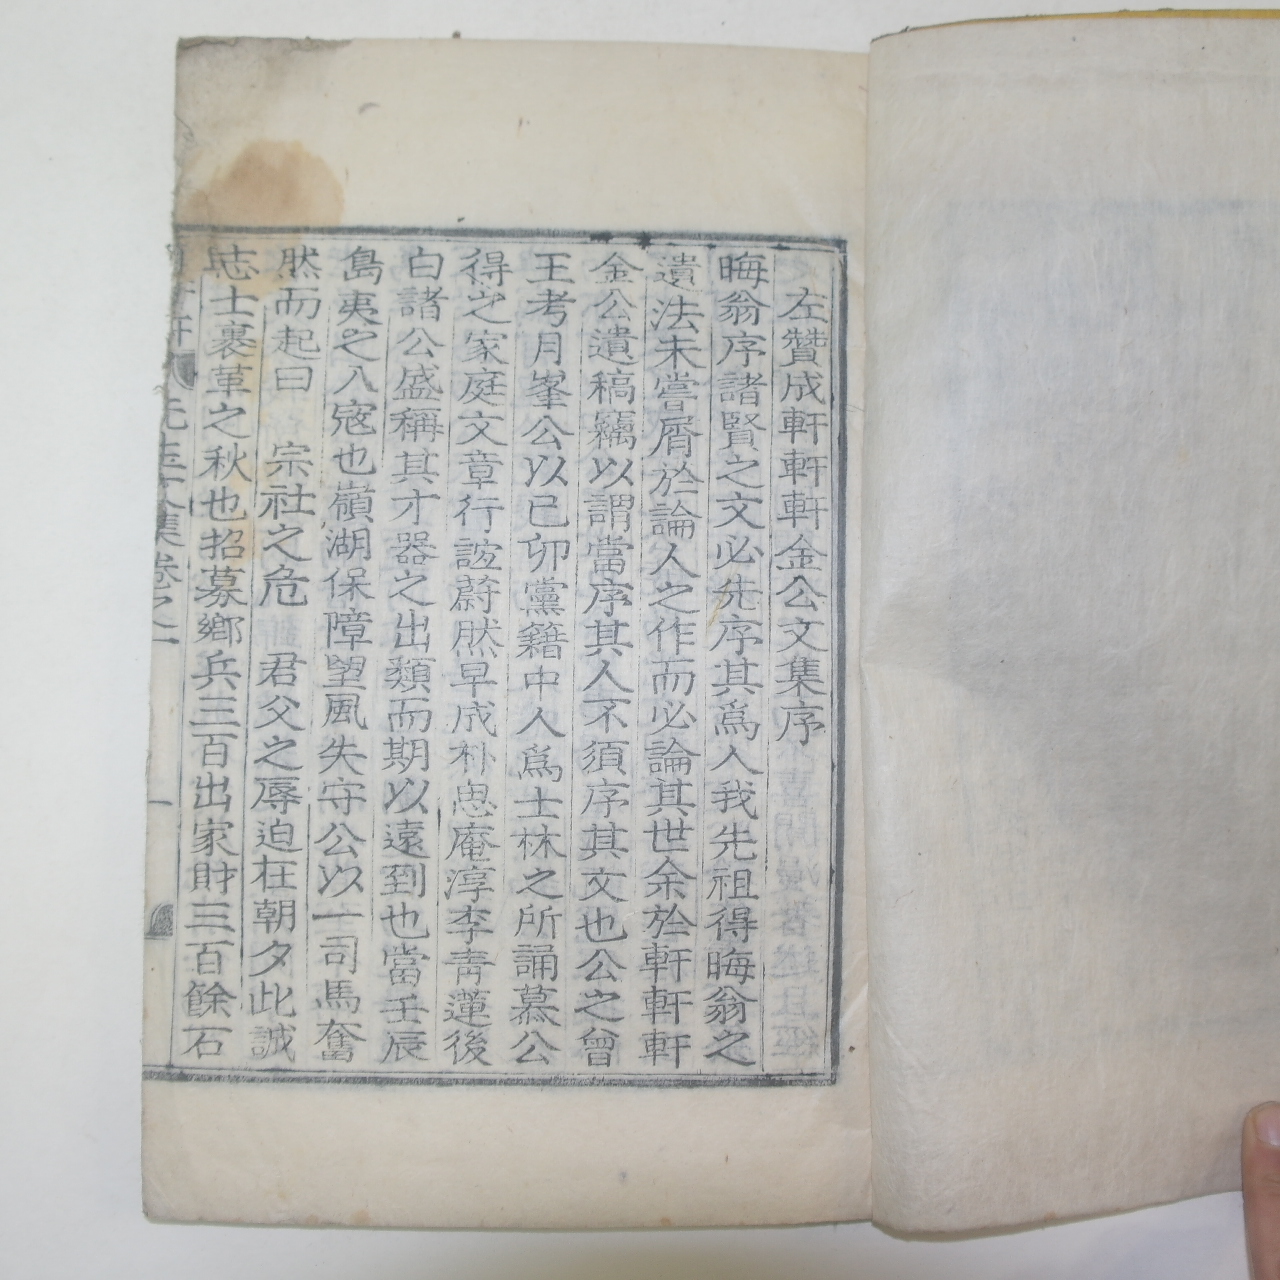 左贊成軒軒軒金公文集序
晦翁序諸賢之文必先序其爲人我先祖得晦翁之
遺法未嘗屑於論人之作而必論其世余於軒軒軒
金公遺稿竊以謂當序其人不須序其文也公之曾
王考月峯公以已卯黨籍中人爲士林之所誦慕公
得之家庭文章行誼蔚然早成朴思庵淳李靑蓮後
白諸公盛稱其才器之出類而期以遠到也當壬辰
島夷之入寇也嶺湖保障望風失守公以一司馬奮
然而起曰 宗社之危 君父之辱迫在朝夕此誠
志士裹革之秋也招募鄕兵三百出家財三百餘石
軒先生文集卷之一
一